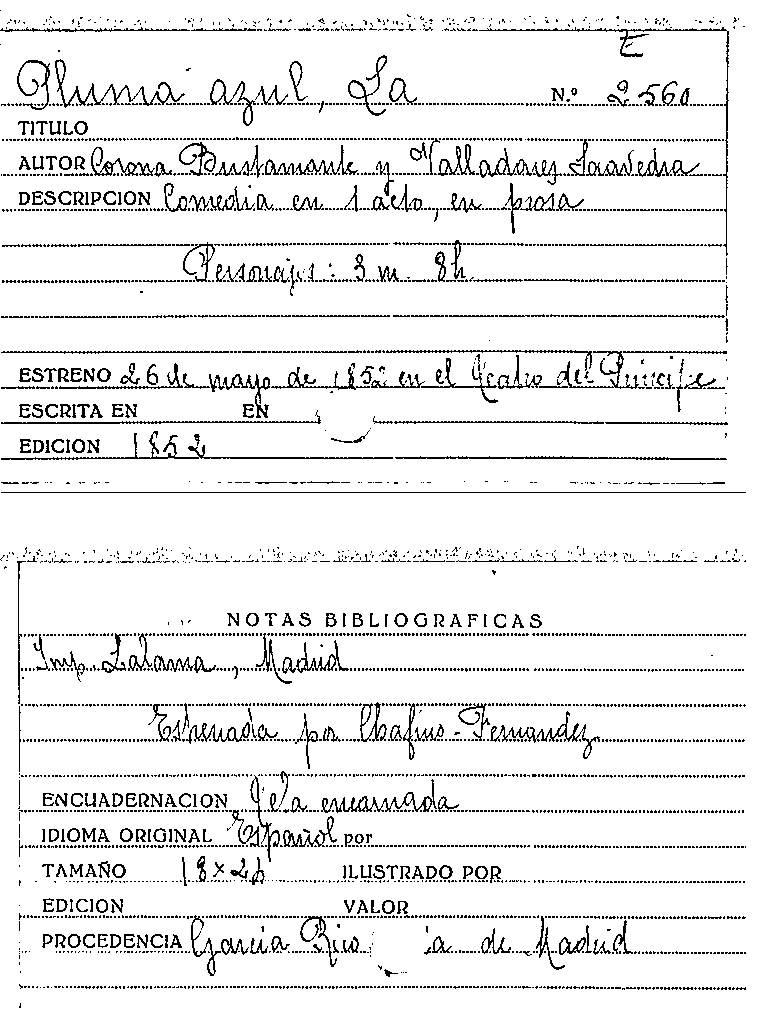 E
Pluma azul, La N.º 2560
TITULO
AUTOR Corona Bustamante y Valladares Saavedra
DESCRIPCION Comedia en 1 acto, en prosa
Personajes: 3 m. 8h.
ESTRENO 26 de mayo de 1852 en el Teatro del Principe
ESCRITA EN EN
EDICION 1852
NOTAS BIBLIOGRAFICAS
Imp. Lalama, Madrid
Estrenada por Chafino-Fernandez
ENCUADERNACION Tela encarnada
IDIOMA ORIGINAL Español por
TAMAÑO 18 x 26 ILUSTRADO POR
EDICION VALOR
PROCEDENCIA Garcia Rico de Madrid